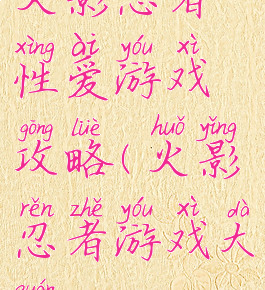 火影忍者
xìng ài yóu xì
性爱游戏
gōng lüè huǒ yǐng
攻略(火影
rěn zhě yóu xì dà
忍者游戏大
quán